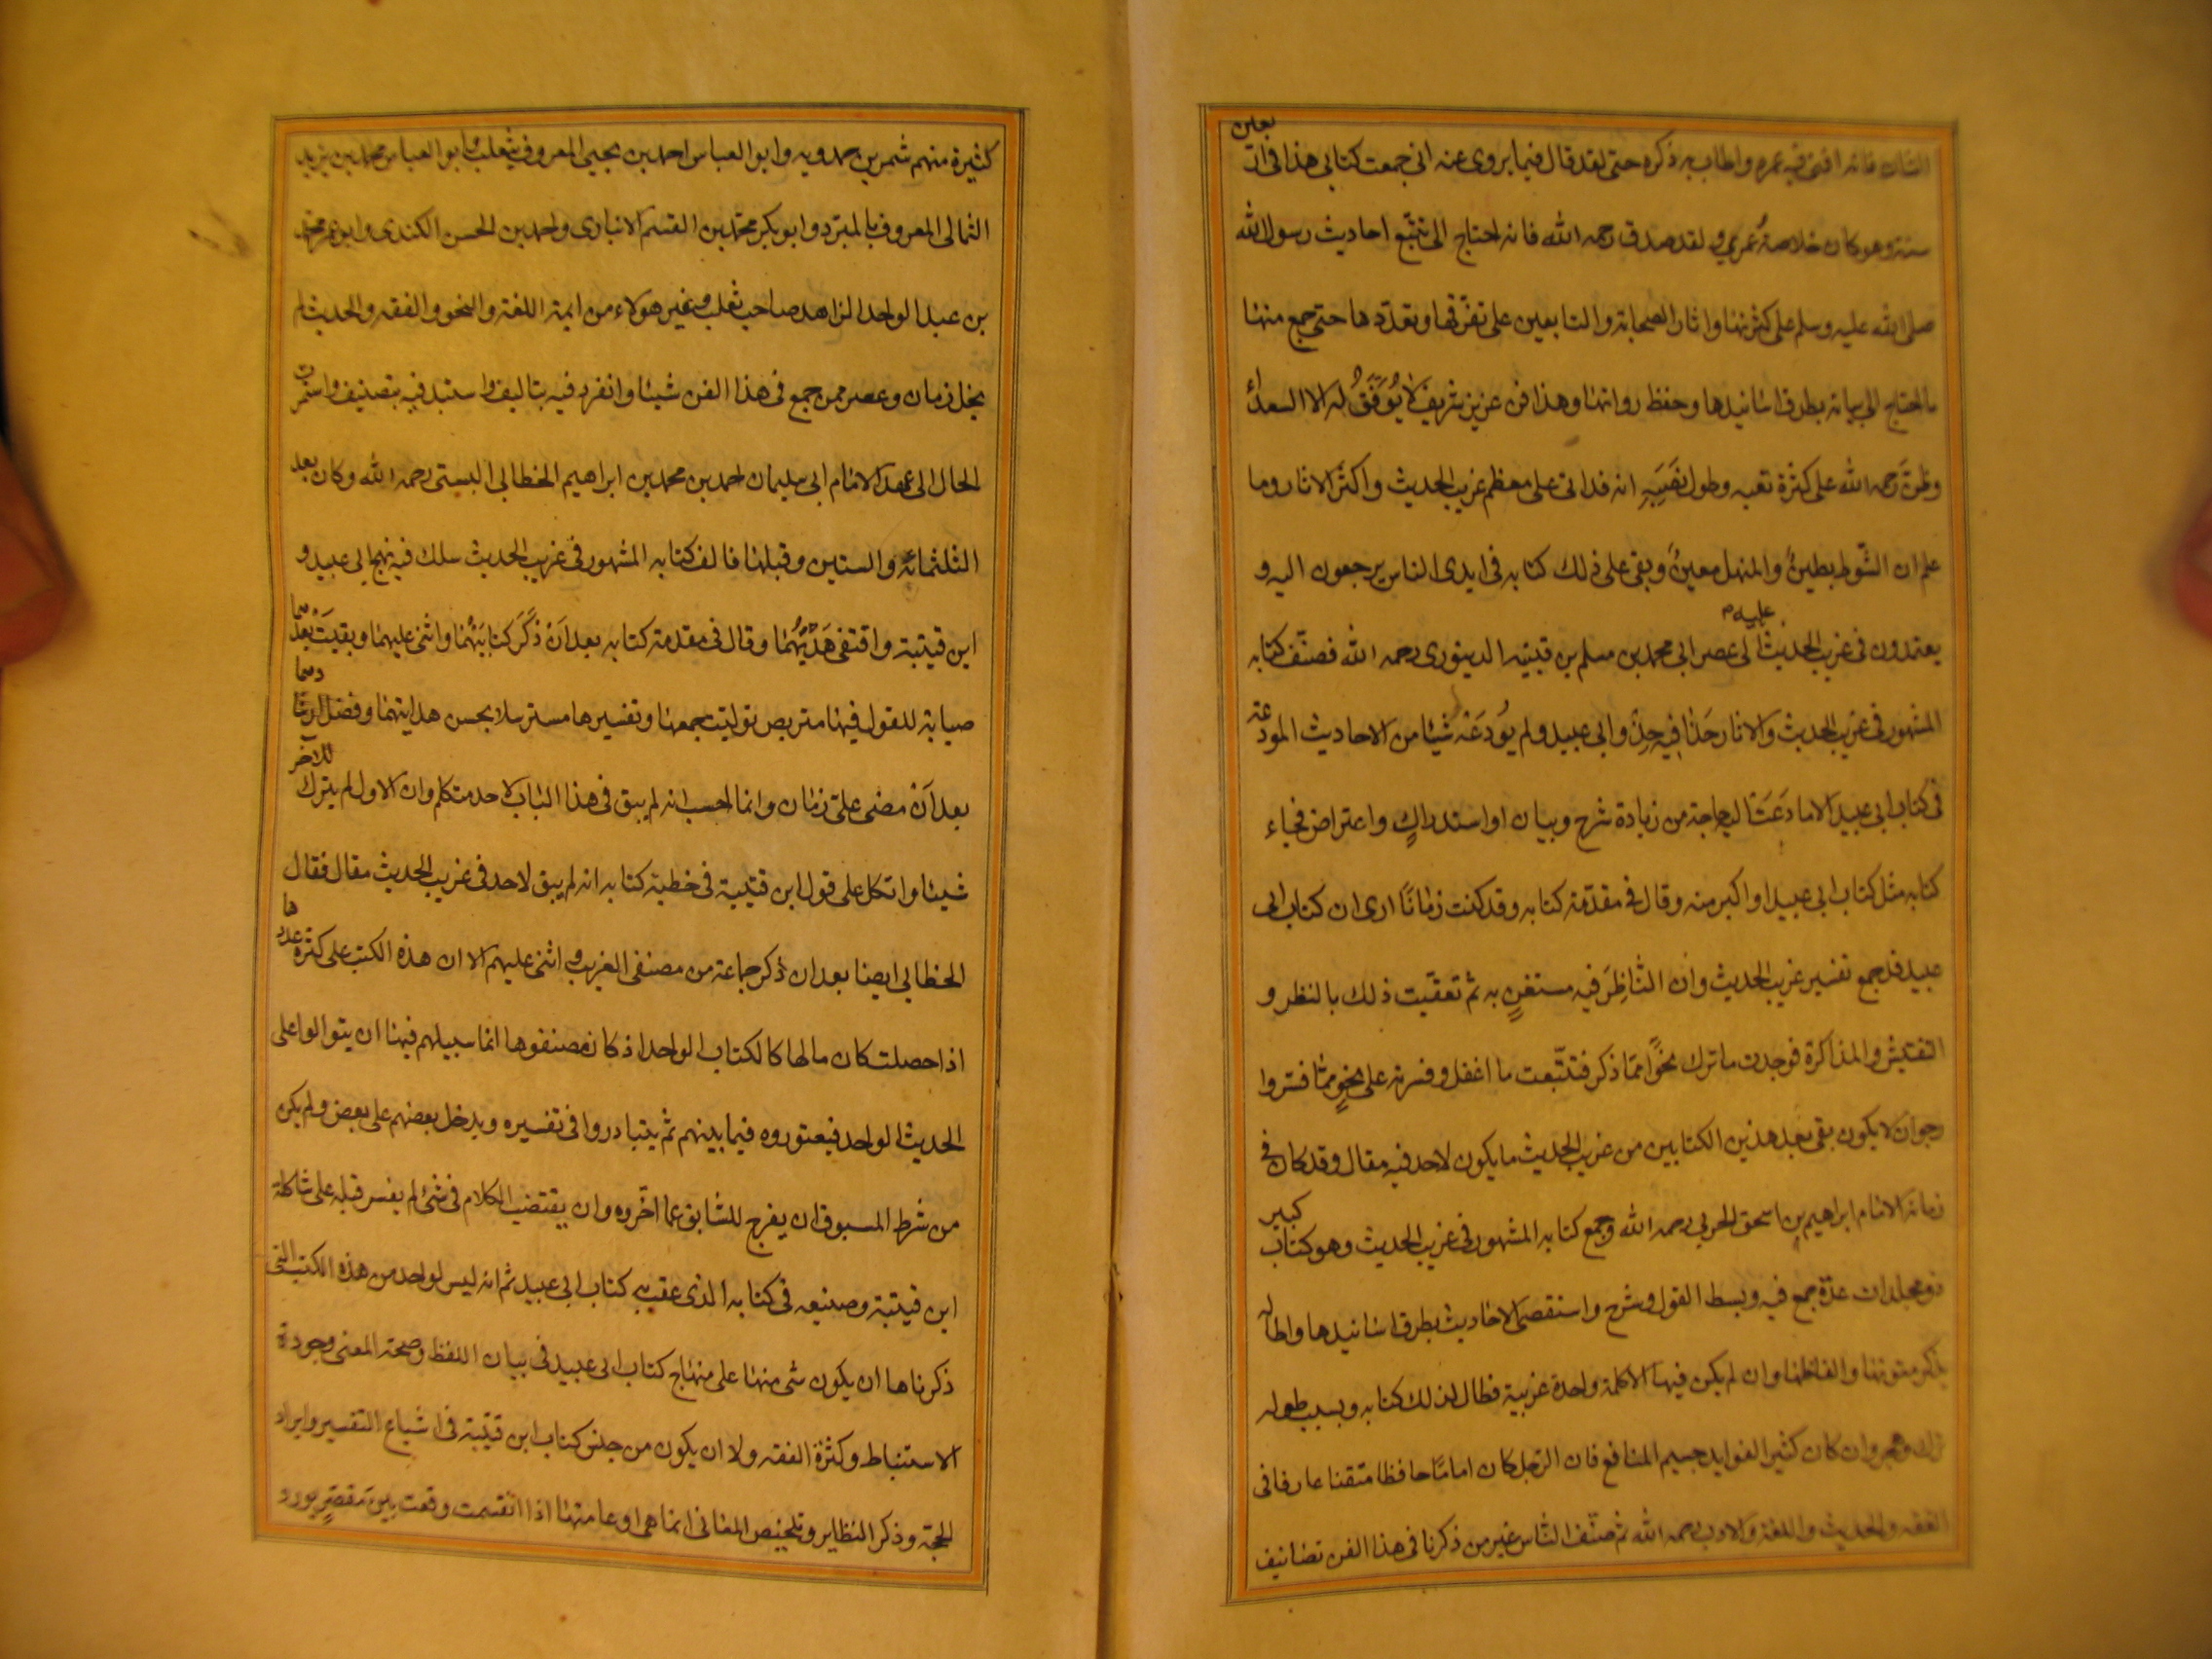 الشان فانه افنى فيه عمره واطاب به ذكره حتى لقد قال فيما يروى عنه انى جمعت كتابى هذا فى اربعين
سنة وهو كان خلاصة عمرى ولقد صدق رحمه الله فانه احتاج الى تتبع احاديث رسول الله
صلى الله عليه وسلم على كثرتها واثار الصحابة والتابعين على تفرقها وتعددها حتى جمع منها
ما احتاج الى بيانه بطرق اسانيدها وحفظ رواتها وهذا فن عزيز شريف لا يُوَفَّقُ له الا السعداء
وظن رحمه الله على كثرة تعبه وطول نصبه انه قد اتى على معظم غريب الحديث واكثر الاثار وما
علم ان الشوط بطين والمنهل معين وبقى على ذلك كتابه فى ايدى الناس يرجعون اليه و
يعتمدون فى غريب الحديث عليه الى عصر ابى محمد بن مسلم بن قتيبه الدينورى رحمه الله فصنّف كتابه
المشهور فى غريب الحديث والاثار حَذا فيه حذو ابى عبيد ولم يُودعه شيئا من الاحاديث المودعة
فى كتاب ابى عبيد الا ما دَعَت اليه حاجة من زيادة شرح وبيان او استدراك واعتراض فجاء
كتابه مثل كتاب ابى عبيد او اكبر منه وقال فى مقدّمة كتابه وقد كنت زمانًا ارى ان كتاب ابى
عبيد قد جمع تفسير غريب الحديث وان الناظرَ فيه مستغنٍ به ثم تعقّبت ذلك بالنظر و
التفتيش والمذاكرة فوجدت ما ترك نحوًا مما ذكر فتتبّعت ما اغفل وفسرته على نحوٍ مما فسّر وا
رجو ان لا يكون بقى بعد هذين الكتابين من غريب الحديث ما يكون لاحد فيه مقال وقد كان فى
زمانه الامام ابراهيم بن اسحق الحربى رحمه الله وجمع كتابه المشهور فى غريب الحديث وهو كتاب كبير
ذو مجلدات عدّة جمع فيه وبسط القول وشرح واستقصى الاحاديث بطرق اسانيدها واطاله
بذكر متونها والفاظها وان لم يكن فيها الا كلمة واحدة غريبة فطال لذلك كتابه وبسبب طوله
ترك وهجر وان كان كثير الفوايد جسيم المنافع فان الرّجل كان امامًا حافظا متقنا عارفا فى
الفقه والحديث واللغة والادب رحمه الله ثم صنّف الناس غير من ذكرنا فى هذا الفن تصانيف
كثيرة منهم شمر بن حمدويه وابو العباس احمد بن يحيى المعروف بثعلب وابو العباس محمد بن يزيد
الثمالى المعروف بالمبرّد وابو بكر محمّد بن القسم الانبارى واحمد بن الحسن الكندى وابو عمر محمّد
بن عبد الواحد الزاهد صاحب ثعلب وغير هولاء من ايمة اللغة والنحو والفقه والحديث لم
يخل زمان وعصر ممن جمع فى هذا الفن شيئا وانفرد فيه بتاليف واستبد فيه بتصنيف واستمرت
الحال الى عهد الامام ابى سليمان احمد بن محمد بن ابراهيم الخطابى البستى رحمه الله وكان بعد
الثلثمائة والستين وقبلها فالف كتابه المشهور فى غريب الحديث سلك فيه نهج ابى عبيد و
ابن قتيبة واقتفى هَدْيَهُما وقال فى مقدمة كتابه بعد اَنْ ذَكَرَ كتابَيْهُما واثنى عليهما وبقيَتْ بعدهما
صبابة للقول فيها متربص توليت جمعها وتفسيرها مسترسلا بحسن هدايتهما وفضل ارشادهما
بعد اَنْ مضى علىّ زمان وانما احسب انه لم يبق فى هذا الباب لاحد متكلم وان الاول لم يترك للآخر
شيئا واتكل على قول ابن قتيبة فى خطبة كتابه انه لم يبق لاحد فى غريب الحديث مقال فقال
الخطابى ايضا بعد ان ذكر جماعة من مصنفى الغريب واثنى عليهم الا ان هذه الكتب على كثرة عددها
اذا حصلت كان مالها كالكتاب الواحد اذ كان مصنفوها انما سبيلهم فيها ان يتوالوا على
الحديث الواحد فيعتوروه فيما بينهم ثم يتبادروا فى تفسيره ويدخل بعضهم على بعض ولم يكن
من شرط المسبوق ان يفرج للسابق عما احّروه وان يقتضب الكلام فى شئ لم يفسر قبله على شاكلة
ابن قتيبة وصنيعه فى كتابه الذى عقب به كتاب ابى عبيد ثم انه ليس لواحد من هذه الكتب التى
ذكرناها ان يكون شى منها على منهاج كتاب ابى عبيد فى بيان اللفظ وصحة المعنى وجودة
الاستنباط وكثرة الفقه ولا ان يكون من جنس كتاب ابن قتيبة فى اشباع التفسير وايراد
الحجة وذكر النظاير وتلخيص المعانى انما هى او عامتها اذا انقسمت وقعت بين مقصّرٍ يورد